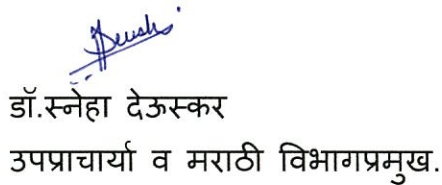 डॉ.स्नेहा देऊस्कर
उपप्राचार्या व मराठी विभागप्रमुख.